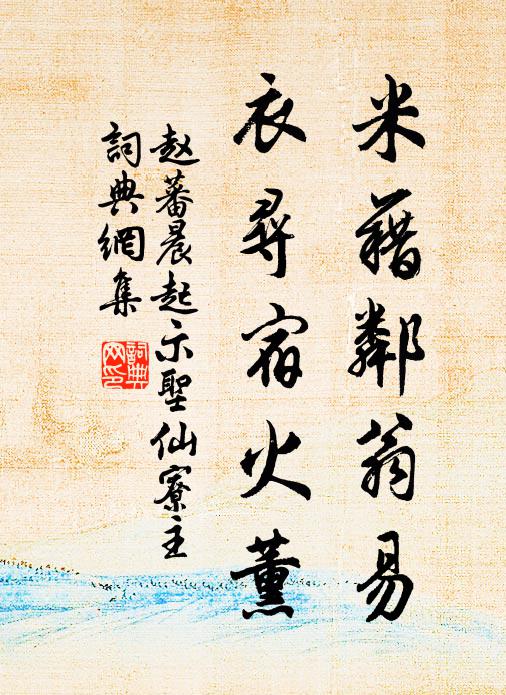 米藉鄰翁易
衣尋宿火薰
赵蕃晨起示聖仙寮主
詞典網集
詞典网印